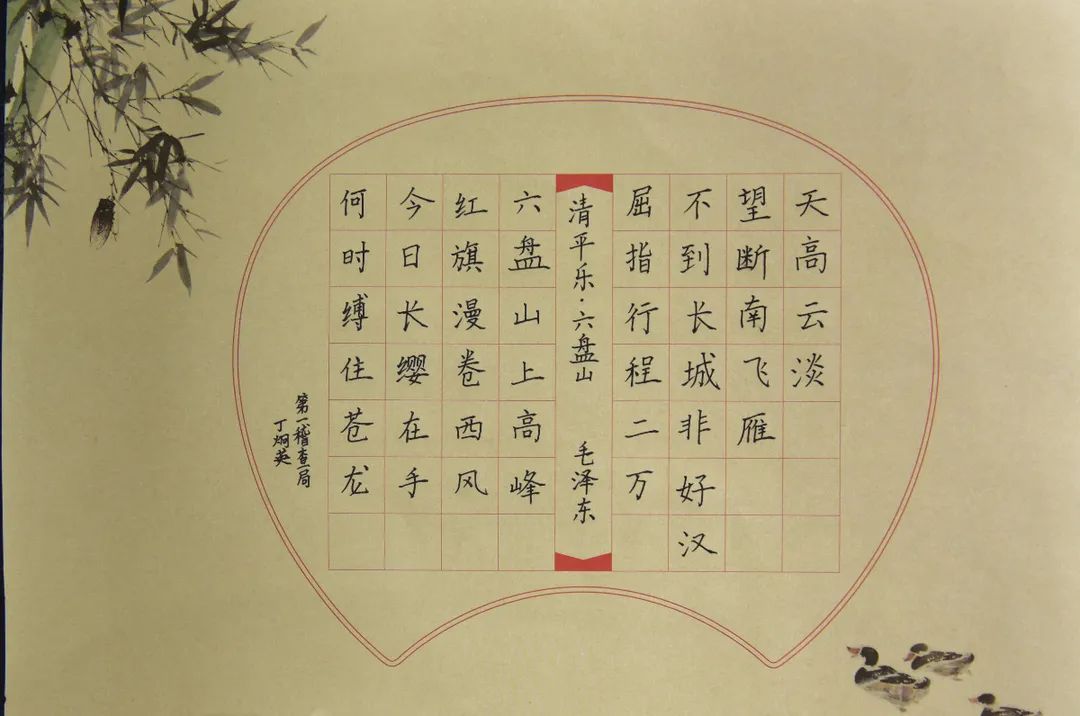 天高云淡
望断南飞雁
不到长城非好汉
屈指行程二万
清平乐·六盘山 毛泽东
六盘山上高峰
红旗漫卷西风
今日长缨在手
何时缚住苍龙
第一稽查局
丁炯英